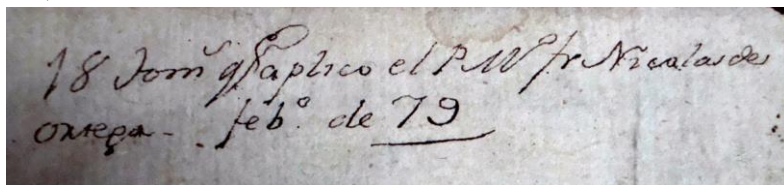 18 tomˢ q̃ aplico el P. Mº fr Nicolas de
ortega - febº. de 79